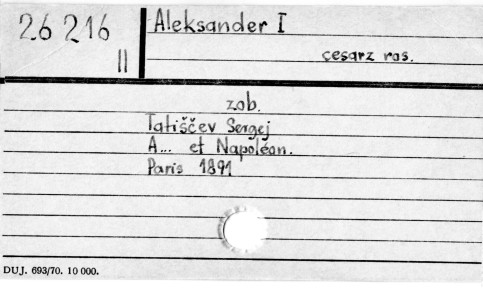 26 216
II
Aleksander I
cesarz ros.
zob.
Tatiščev Sergej
A... et Napoléon.
Paris 1891
DUJ. 693/70. 10 000.